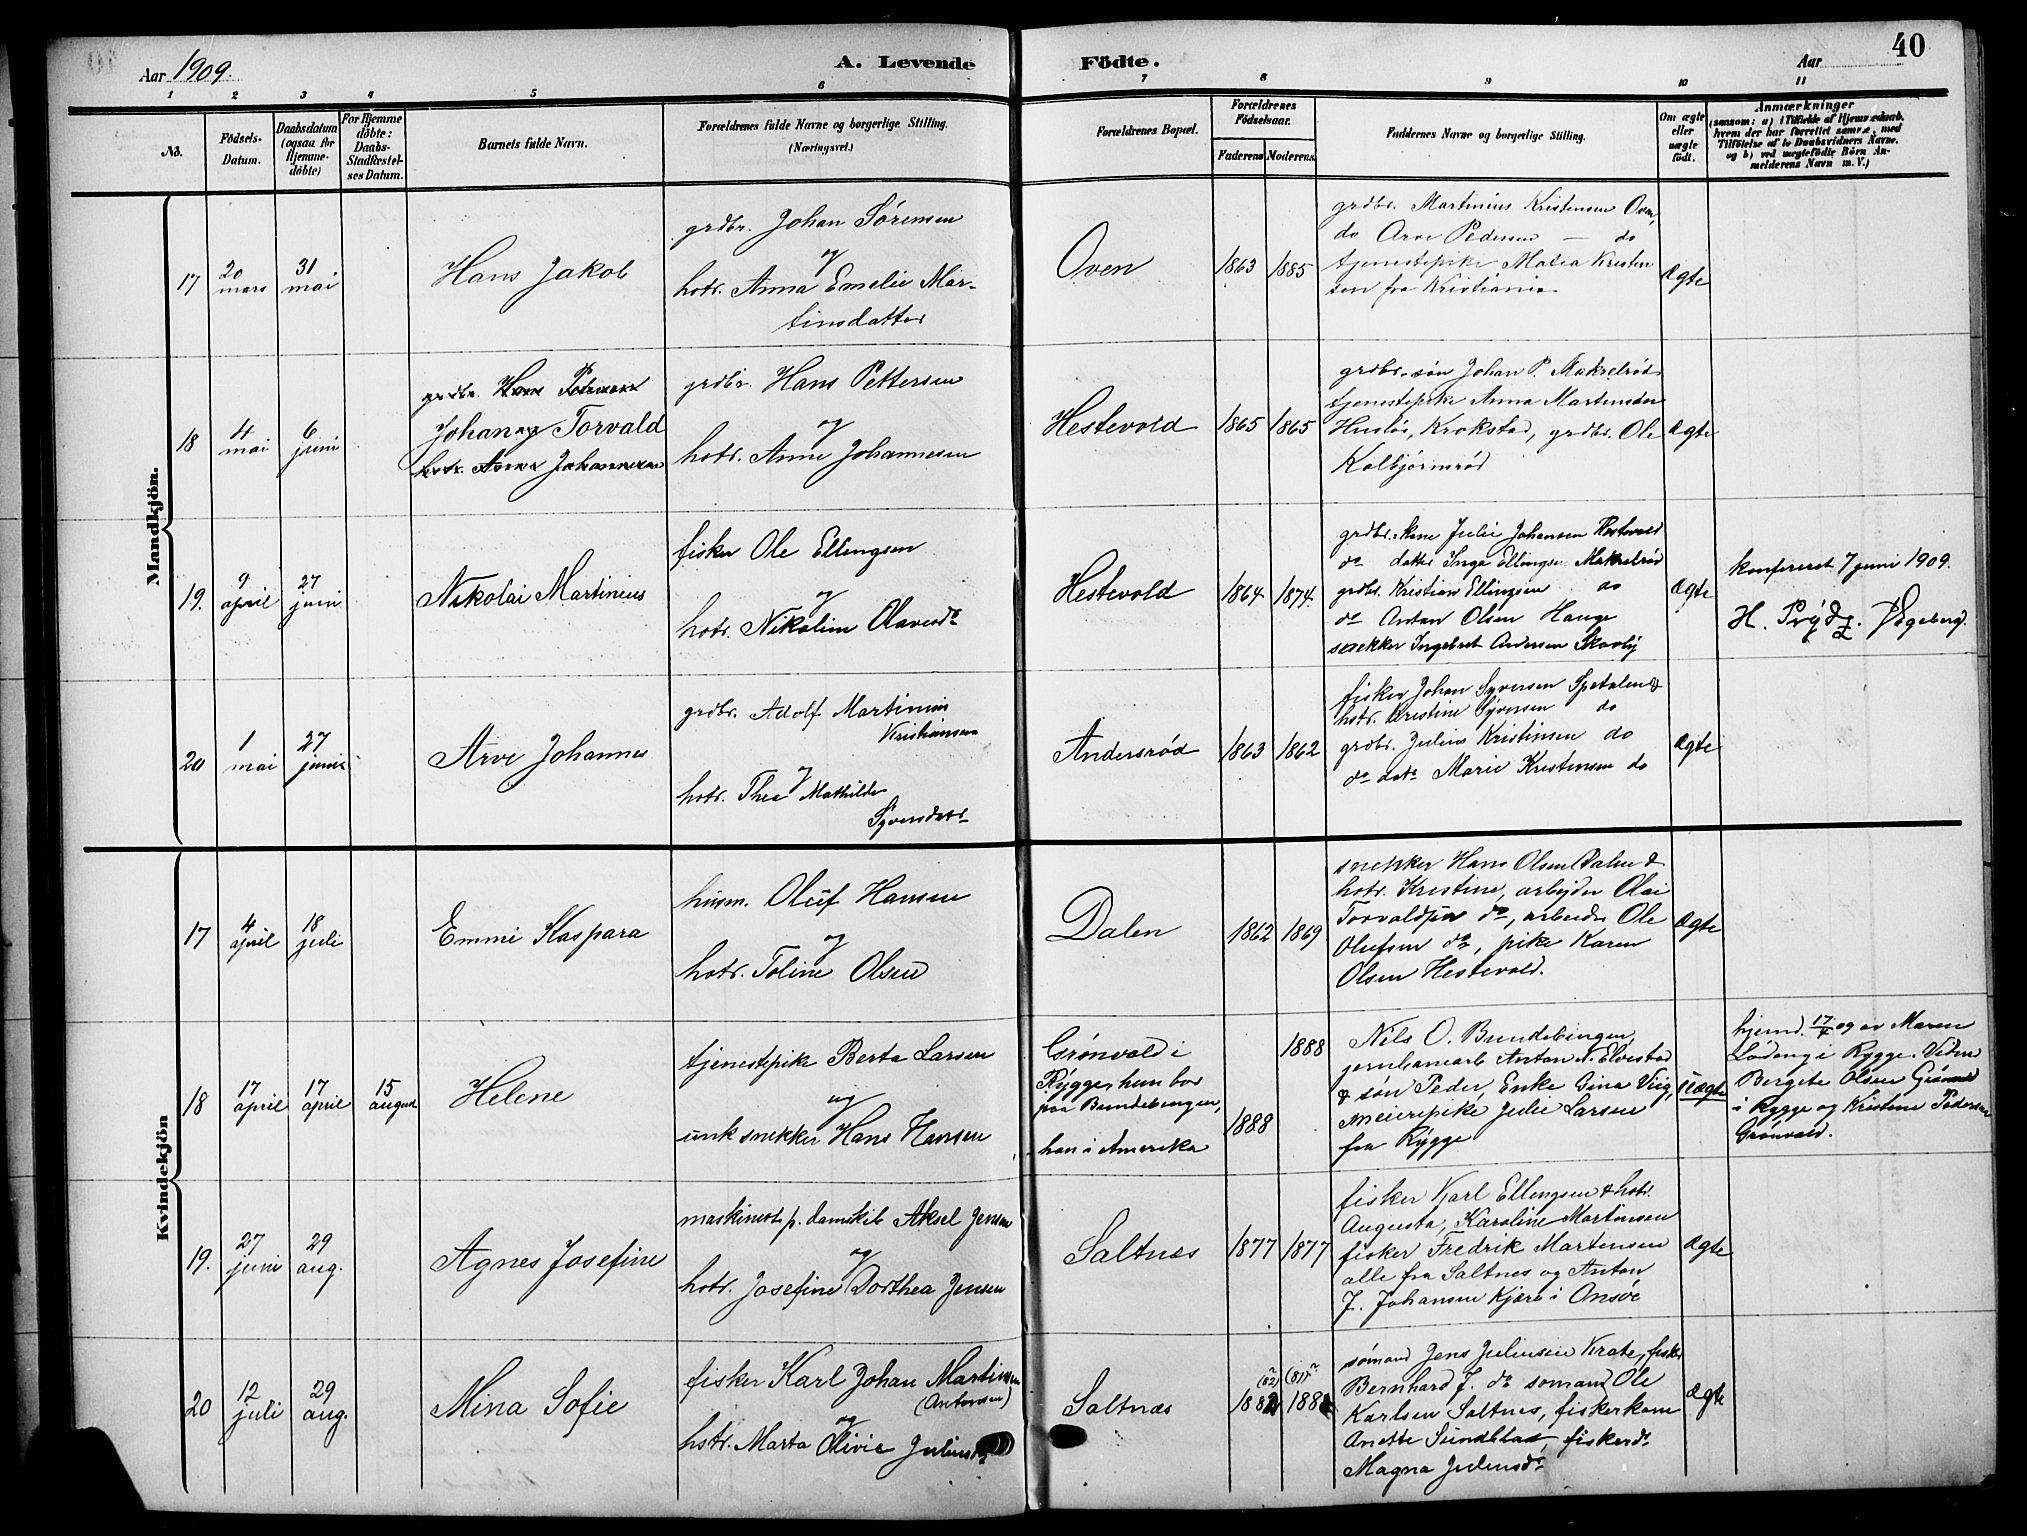 Aar 1909.
A. Levende
Födte.
Aar
40
1 2 3 4 5 6 7 8 9 10 11
No.
Födsels-
Datum.
Daabsdatum
(ogsaa for
Hjemme-
döbte)
For Hjemme
döbte:
Daabs-
Stadfæstel-
ses Datum.
Barnets fulde Navn.
Forældrenes fulde Navne og borgerlige Stilling.
(Næringsvei.)
Forældrenes Bopæl.
Forældrenes
Födselsaar.
Faderens Moderens
Faddernes Navne og borgerlige Stilling.
Om ægte
eller
uægte
födt.
Anmærkninger
(saasom: a) i Tilfælde af Hjemmedaab,
hvem der har forrettet samme, med
Tilföielse af to Daabsvidners Navne,
og b) ved uægtefödte Börn An-
melderens Navn m. V.)
Mandkjön.
17
20
mars
31
mai
Hans Jakob
grdbr. Johan Sörensen
og
hstr. Anna Emelie Mar-
tinsdatter
Oven
1863
1885
grdbr. Martinius Kristensen Oven,
do Arve Pedersen — do
tjenestepike Matea Kristen
sen fra Kristiania
ægte
18
4
mai
6
juni
grdbr. Hans Pettersen
Johan og Torvald
hstr. Anne Johannesen
grdbr. Hans Pettersen
og
hstr. Anne Johannesen
Hestevold
1865
1865
grdbr. søn Johan P. Makrelrød
tjenestepike Anna Martensder
Husløs, Krokstad, grdbr. Ole
Kolbjörnsrød
ægte
19.
9
april
27
juni
Nikolai Martinius
fisker Ole Ellingsen
og
hstr. Nikoline Olavsdr
Hestevold
1864
1874.
grdbr. kone Julie Johansen Hestevold
do datter Inga Ellingsen Makrelrød
grdbr. Kristian Ellingsen do
do Anton Olsen Hauge
snekker Ingebret Andersen Skovby
ægte
konfereret 7 juni 1909.
H. Prydz.
20
1
mai
27
juni
Arve Johannes
grdbr. Adolf Martinius
Kristiansen
og
hstr. Thea Mathilde
Syversdatr
Andersrød
1863
1862
fisker Johan Syversen Spetalen &
hstr. Kristine Syversen do
grdbr. Julius Kristinsen do
do datr Marie Kristensen do
ægte
Kvindekjön
17
4
april
18
juli
Emmi Kaspara
husm. Oluf Hansen
og
hstr. Toline Olsen
Dalen
1862
1869
snekker Hans Olsen Dalen &
hstr. Kristine, arbejder Olai
Torvaldsen do, arbeider Ole
Olufsen do, pike Karen
Olsen Hestevold.
ægte
18
17
april
17
april
15
august
Helene
tjenestepike Berta Larsen
og
unk snekker Hans Hansen
Grönvold i
Rygge, hun bor
paa Bundebingen,
han i Amerika
1888
1888
Nils O. Bundebingen,
jernbanearb Anton N. Elvestad
& søn Peder, Enke Gina Viig,
meieripike Julie Larsen
fra Rygge
uægte
hjemd. 17/4 09 av Maren
Lodeng i Rygge. Vidner
Bergete Olsen Grönvold
i Rygge og Kristine Pedersen
Grönvold.
19.
27
juni
29
aug.
Agnes Josefine
maskinist p. damskib Aksel Jensen
og
hstr. Josefine Dorthea Jensen
Saltnes
1877
1877
fisker Karl Ellingsen & hstr.
Augusta, Karoline Martinsen
fisker Fredrik Martensen
alle fra Saltnes og Anton
J. Johansen Kjære i Onsöe
ægte
20
12
juli
29
aug.
Mina Sofie
fisker Karl Johan Martinsen
(Antonsen)
og
hstr. Marta Olivie Juliusdr
Saltnæs
(82)
(81)
188
188
sømand Jens Juliusen Krate, fisker
Bernhard J. do sømand Ole
Karlsen Saltnes, fiskerkone
Anette Sundblad, fiskerdr
Magna Juliusdr
ægte